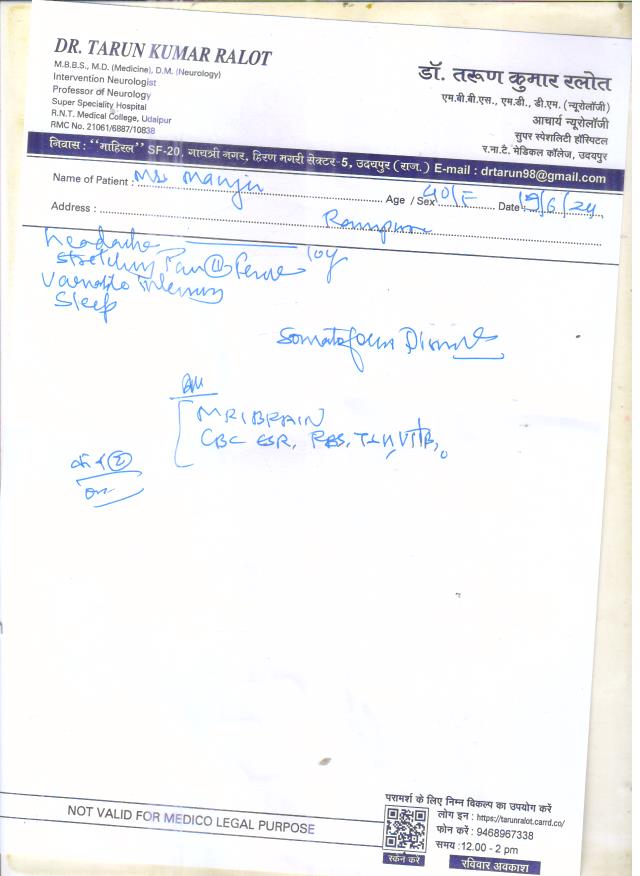 DR. TARUN KUMAR RALOT
M.B.B.S., M.D. (Medicine), D.M. (Neurology)
Intervention Neurologist
Professor of Neurology
Super Speciality Hospital
R.N.T. Medical College, Udaipur
RMC No. 21061/6887/10838
डॉ. तरूण कुमार रलोत
एम.बी.बी.एस., एम.डी., डी.एम. (न्यूरोलॉजी)
आचार्य न्यूरोलॉजी
सुपर स्पेशलिटी हॉस्पिटल
र.ना.टै. मेडिकल कॉलेज, उदयपुर
निवास : "माहिरल" SF-20, गायत्री नगर, हिरण मगरी सेक्टर-5, उदयपुर (राज.) E-mail : drtarun98@gmail.com
Name of Patient : Ms Manju Age / Sex 40/F Date 19/6/24
Address :
headache 10y
Stretching Pain
Sleep
Somatoform
MRI BRAIN
CBC ESR, RBS, TSH, Vit B12
NOT VALID FOR MEDICO LEGAL PURPOSE
परामर्श के लिए निम्न विकल्प का उपयोग करें
लोग इन : https://tarunralot.carrd.co/
फोन करें : 9468967338
समय :12.00 - 2 pm
स्कैन करें
रविवार अवकाश